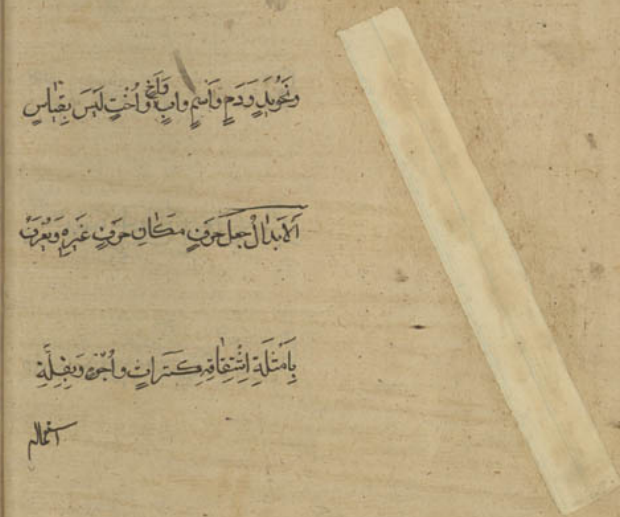 ونحو يدٍ ودمٍ واسمٍ وابٍ واخٍ واُختٍ ليسَ بقياسٍ
الابدال جعل حرفٍ مكان حرفٍ غيرِهِ ويُعرفُ
بِاَمثلةِ اشتقاقِهِ كتراثٍ واُجُوهٍ وبقِلَّةِ
استعماله